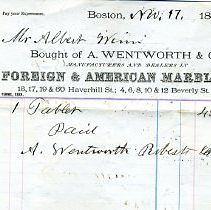 Pay your Expressman.
Boston, Nov. 17, 18
Mr Albert
Bought of A. WENTWORTH & C
MANUFACTURERS AND DEALERS IN
FOREIGN & AMERICAN MARBL
15, 17, 19 & 60 Haverhill St.; 4, 6, 8, 10 & 12 Beverly St.
1 Tablet
Paid
A. Wentworth